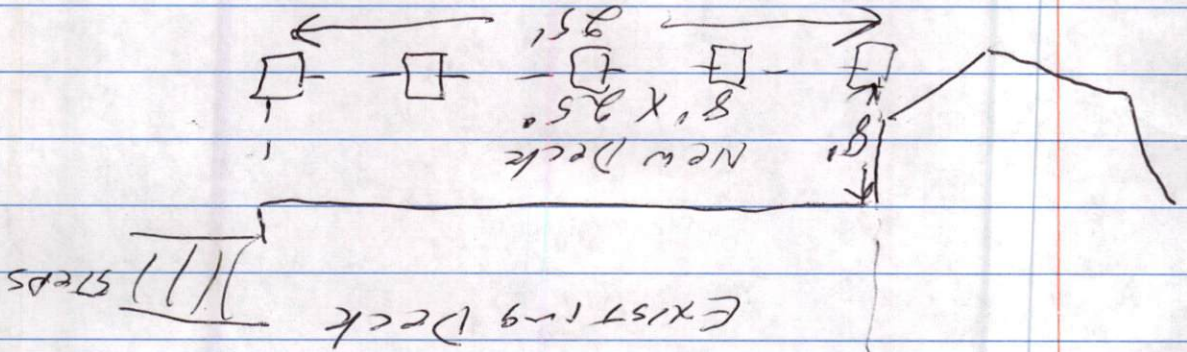 Existing Deck
Steps
8'
New Deck
8' x 25'
25'